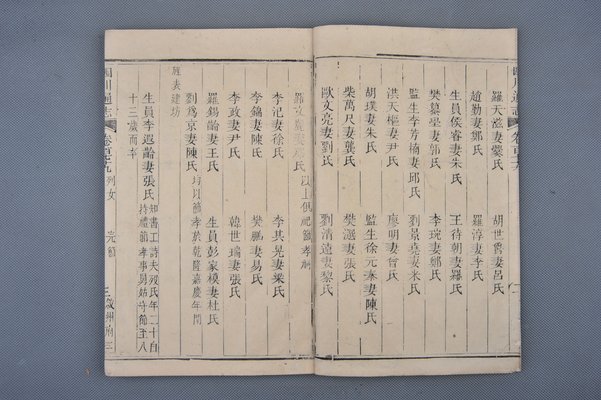 四川通志
卷百六十九
羅天溢妻嚴氏 胡世爵妻呂氏
趙勤妻鄭氏 羅淳妻李氏
生員侯睿妻朱氏 王待朝妻羅氏
樊墓學妻郭氏 李琬妻鄭氏
監生李芳楠妻邱氏 劉景堯妻米氏
洪天樞妻尹氏 廖明妻曾氏
胡璞妻朱氏 監生徐元妻陳氏
柴萬尺妻龔氏 樊選妻張氏
歐文亮妻劉氏 劉清遠妻黎氏
羅文妻氏以上俱祀節孝祠
李洍妻徐氏 李其晃妻梁氏
李鏞妻陳氏 樊鵬妻易氏
李政妻尹氏 韓世瑞妻張氏
羅錫齡妻王氏 生員彭家模妻杜氏
劉為京妻陳氏均以節孝於乾隆嘉慶年間
旌表建坊
生員李遐齡妻張氏知書工詩夫歿氏年二十自
持禮節孝事舅姑守節至八
十三歲而卒
四川通志
卷百六十九 列女